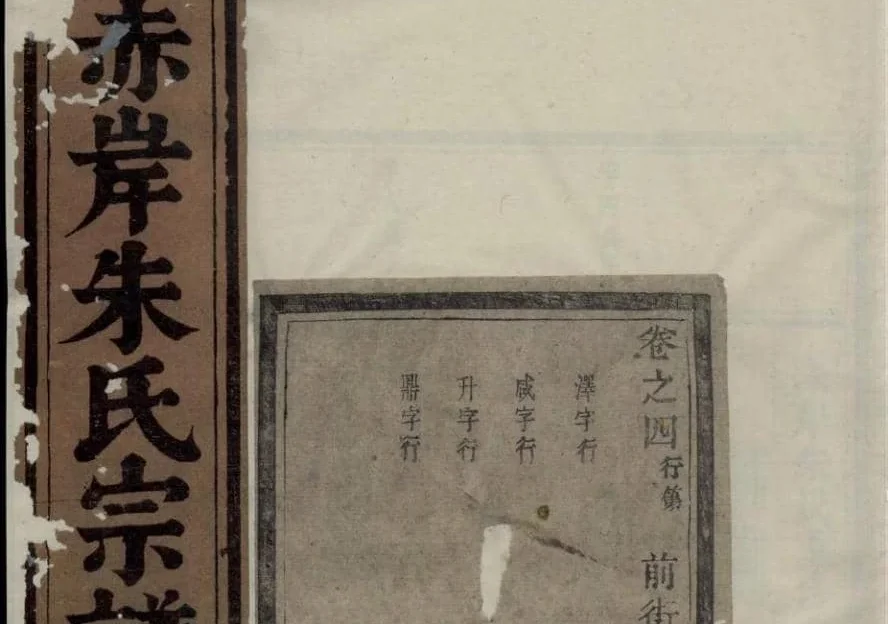 赤岸朱氏宗譜
卷之四行第 前街
澤字行
咸字行
升字行
鼎字行